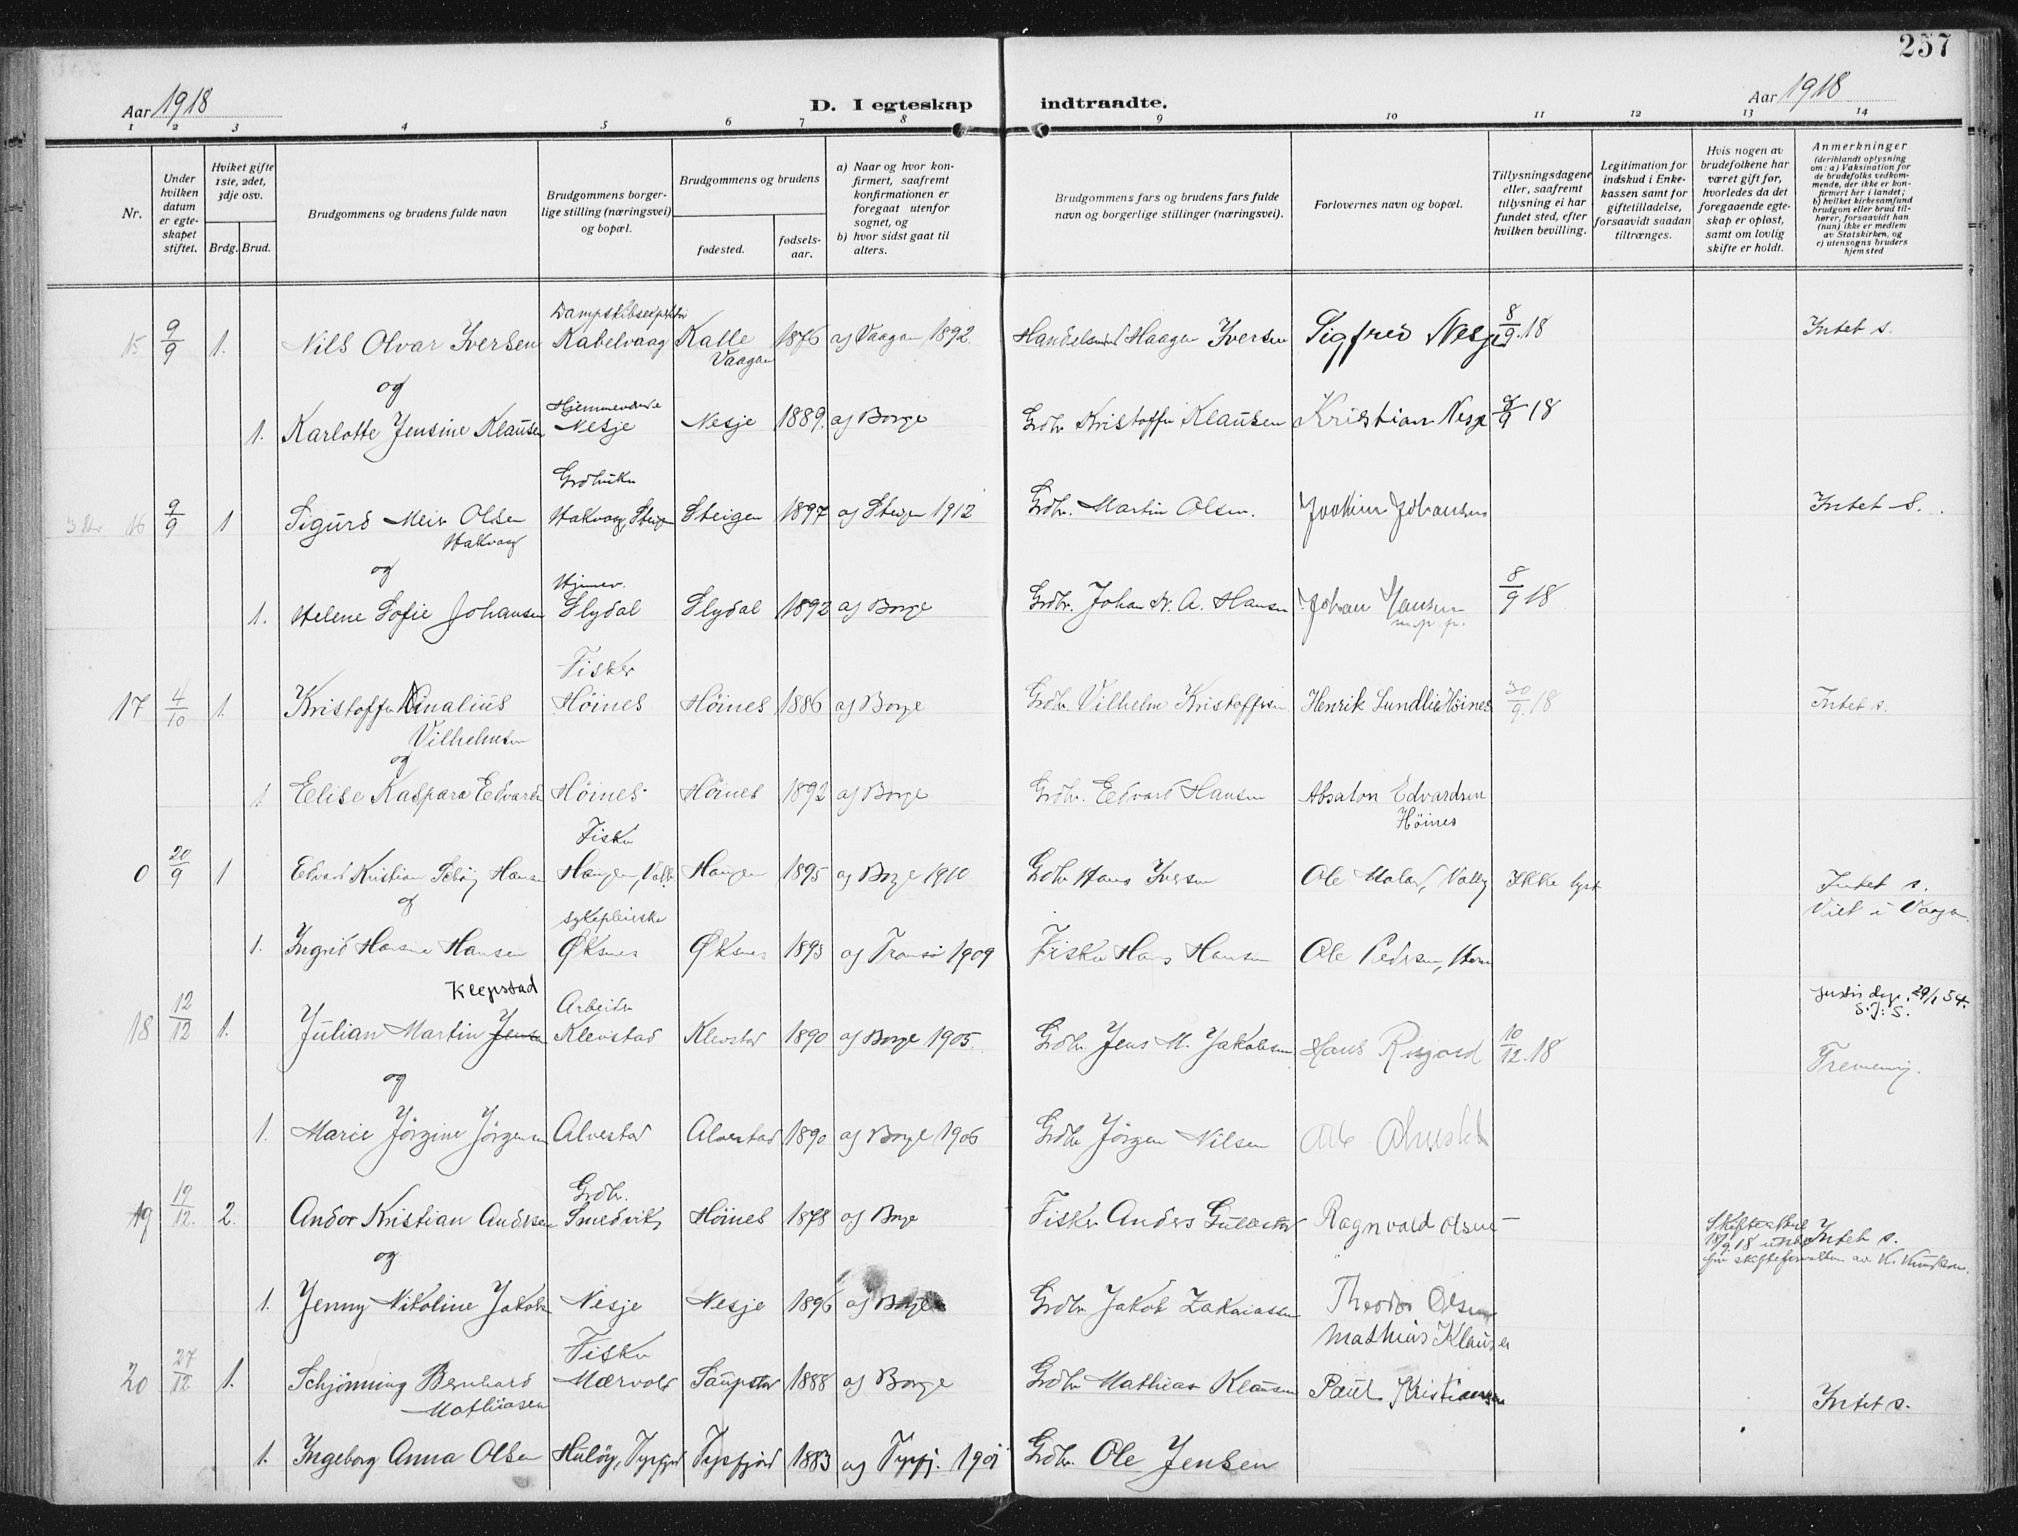 257
Aar 1918
D. I egteskap indtraadte.
Aar 1918
1 2 3 4 5 6 7 8 9 10 11 12 13 14
Nr.
Under hvilken datum er egteskapet stiftet.
Hviket gifte 1ste, 2det, 3dje osv.
Brdg. Brud.
Brudgommens og brudens fulde navn
Brudgommens borgerlige stilling (næringsvei) og bopæl.
Brudgommens og brudens
fødested.
fødselsaar.
a) Naar og hvor konfirmert, saafremt konfirmationen er foregaat utenfor sognet, og
b) hvor sidst gaat til alters.
Brudgommens fars og brudens fars fulde navn og borgerlige stillinger (næringsvei).
Forlovernes navn og bopæl.
Tillysningsdagene eller, saafremt tillysning ei har fundet sted, efter hvilken bevilling.
Legitimation for indskud i Enkekassen samt for giftetilladelse, forsaavidt saadan tiltrænges.
Hvis nogen av brudefolkene har været gift før, hvorledes da det foregaaende egteskap er opløst, samt om lovlig skifte er holdt.
Anmerkninger (deriblandt oplysning om: a) Vaksination for de brudefolks vedkommende, der ikke er konfirmert her i landet; b) hvilket kirkesamfund brudgom eller brud tilhører, forsaavidt han (hun) ikke er medlem av Statskirken, og c) utensogns bruders hjemsted
15 9/9 1. Nils Olvar Iversen Kabelvaag Kalle Vaagan 1876 ag Vaagan 1892 Handelsmand Haagen Iversen Sigfred Nesje 8/9 18 Intet s.
og
1. Karlotte Jensine Klausen Hjemmeværende Nesje Nesje 1889 ag Borge Grdbr Kristoffer Klausen Kristian Nesje 8/9 18
16 9/9 1 Sigurd Meier Olsen Hakvaag Grdbruker Hakvaag, Steigen Steigen 1897 ag Steigen 1912 Grdbr. Martin Olsen. Joakim Johansen Intet S.
og
1. Helene Sofie Johansen Hjemmev. Slydal Slydal 1892 ag Borge Grdbr. Johan N. A. Hansen Johan Hansen m. p. p. 8/9 18
17 4/10 1. Kristoffer Vilhelmsen Fisker Höines Höines 1886 ag Borge Grdbr Vilhelm Kristoffersen Henrik Lundli Höines 30/9 18 Intet s.
og
1 Eelise Kaspara Edvards Höines Höines 1892 ag Borge Grdbr. Eedvard Hansen Absalon Edvardsen Höines
0 20/9 1 Edvard Kristian Hansen Fisker Haugen, Haugen 1895 ag Borge 1910 Grdbr Hans Iversen Ole Ikke lyst Intet s. Viet i Vaagan
og
1. Ingrid Hansine Hansen sykepleierske Øksnes Øksnes 1893 ag Tromsö 1909 Fisker Hans Hansen Ole Pedersen,
Kleppstad
18 12/12 1. Julian Martin Jensen Arbeider Klevstad Klevstad 1890 ag Borge 1905. Grdbr Jens M. Jakobsen Hans 10/12 18 29/1 54. S. J. S. Tremenig.
og
1. Marie Jörgine Jörgensen Alvestad Alvestad 1890 ag Borge 1906 Grdbr Jörgen Nilsen
19 19/12. 2. Andor Kristian Andersen Grdbr. Smedvik, Höines 1878 ag Borge Fisker Anders Ragnvald Olsen Intet s.
og
1. Jenny Nikoline Jakobs Nesje Nesje 1896 ag Borge Grdbr Jakob Zakariassen Theodor Olsen
Mathias Klausen
20 27/12 1. Schjönning Bernhard Mathiasen Fisker Mærvold Saupstad 1888 ag Borge Grdbr Mathias Klausen Paul Kristiansen Intet s.
1. Ingeborg Anna Olsen Hulöy, Tysfjord Tysfjord 1883 ag Tysfj. 1901 Grdbr. Ole Jensen